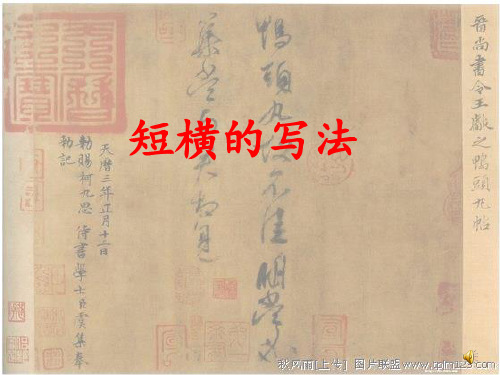 短横的写法
晋尚書令王獻之鴨頭丸帖
鴨頭丸故不佳明當必
集當與君相見
天曆三年正月十二日
勑賜柯九思侍書學士臣虞集奉
勑記
天曆之寳
秋风雨[上传] 图片联盟 www.pplm123.com